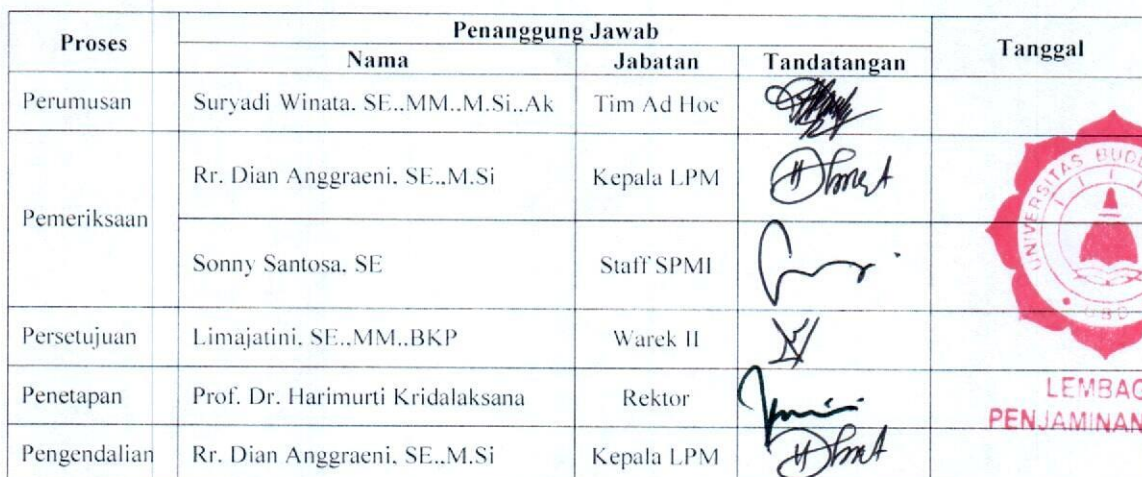 Proses Penanggung Jawab Tanggal
Nama Jabatan Tandatangan
Perumusan Suryadi Winata. SE..MM..M.Si..Ak Tim Ad Hoc
Pemeriksaan
Rr. Dian Anggraeni. SE..M.Si Kepala LPM
Sonny Santosa. SE Staff SPMI
Persetujuan Limajatini. SE..MM..BKP Warek II
Penetapan Prof. Dr. Harimurti Kridalaksana Rektor
Pengendalian Rr. Dian Anggraeni, SE..M.Si Kepala LPM
UNIVERSITAS BUD
UBD
LEMBAG
PENJAMINAN